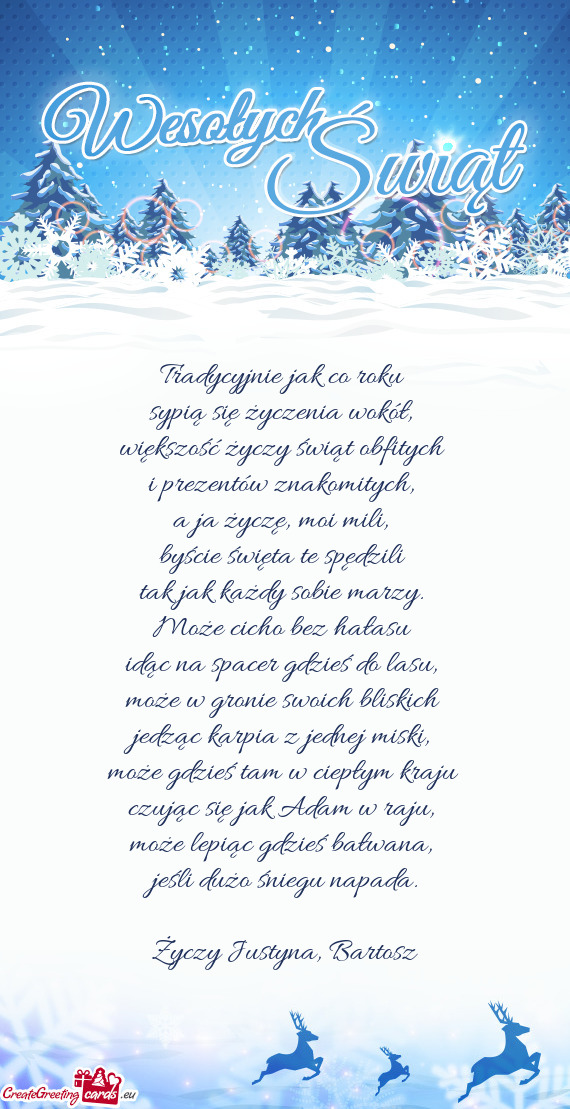 Wesołych
Świąt
Tradycyjnie jak co roku
sypią się życzenia wokół,
większość życzy świąt obfitych
i prezentów znakomitych,
a ja życzę, moi mili,
byście święta te spędzili
tak jak każdy sobie marzy.
Może cicho bez hałasu
idąc na spacer gdzieś do lasu,
może w gronie swoich bliskich
jedząc karpia z jednej miski,
może gdzieś tam w ciepłym kraju
czując się jak Adam w raju,
może lepiąc gdzieś bałwana,
jeśli dużo śniegu napada.
Życzy Justyna, Bartosz
CreateGreeting cards .eu